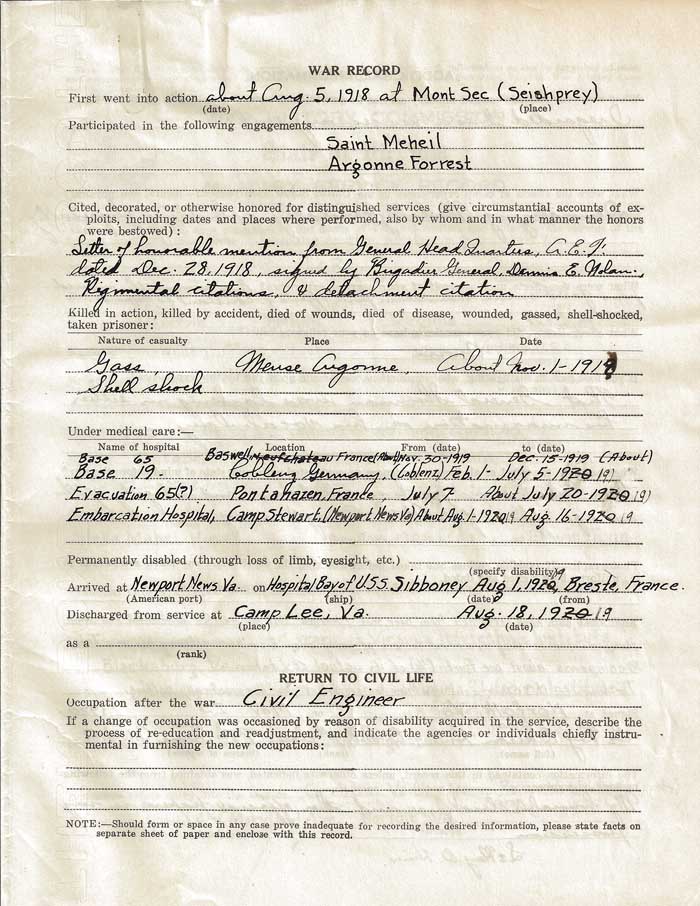 WAR RECORD
First went into action about Aug. 5, 1918 at Mont Sec (Seishprey)
(date) (place)
Participated in the following engagements
Saint Meheil
Argonne Forrest
Cited, decorated, or otherwise honored for distinguished services (give circumstantial accounts of ex-
ploits, including dates and places where performed, also by whom and in what manner the honors
were bestowed) :
Letter of honorable mention from General Head Quarters, A.E.F.
dated Dec. 28, 1918, signed by Brigadier General, Dennis E. Nolan.,
Rigimental citations, & detachment citation
Killed in action, killed by accident, died of wounds, died of disease, wounded, gassed, shell-shocked,
taken prisoner:
Nature of casualty Place Date
Gass, Meuse Argonne, About Nov. 1-1918
Shell shock
Under medical care:—
Name of hospital Location From (date) to (date)
Base 65 Baswell Neufchateau France (About) Nov. 30-1919 Dec. 15-1919 (About)
Base 19. Coblenz Germany, (Coblenz) Feb. 1- July 5-1920 19)
Evacuation 65(?) Pontahazen, France, July 7- About July 20-1920 19)
Embarcation Hospital, Camp Stewart. (Newport News Va) About Aug. 1-1920 19 Aug. 16-1920 19
Permanently disabled (through loss of limb, eyesight, etc.)
(specify disability) 19
Arrived at Newport News Va. on Hospital Bay of U.S.S. Sibboney Aug 1, 1920, Breste, France.
(American port) (ship) (date) (from)
Discharged from service at Camp Lee, Va. Aug. 18, 1920 19
(place) (date)
as a
(rank)
RETURN TO CIVIL LIFE
Occupation after the war Civil Engineer
If a change of occupation was occasioned by reason of disability acquired in the service, describe the
process of re-education and readjustment, and indicate the agencies or individuals chiefly instru-
mental in furnishing the new occupations:
NOTE:—Should form or space in any case prove inadequate for recording the desired information, please state facts on
separate sheet of paper and enclose with this record.